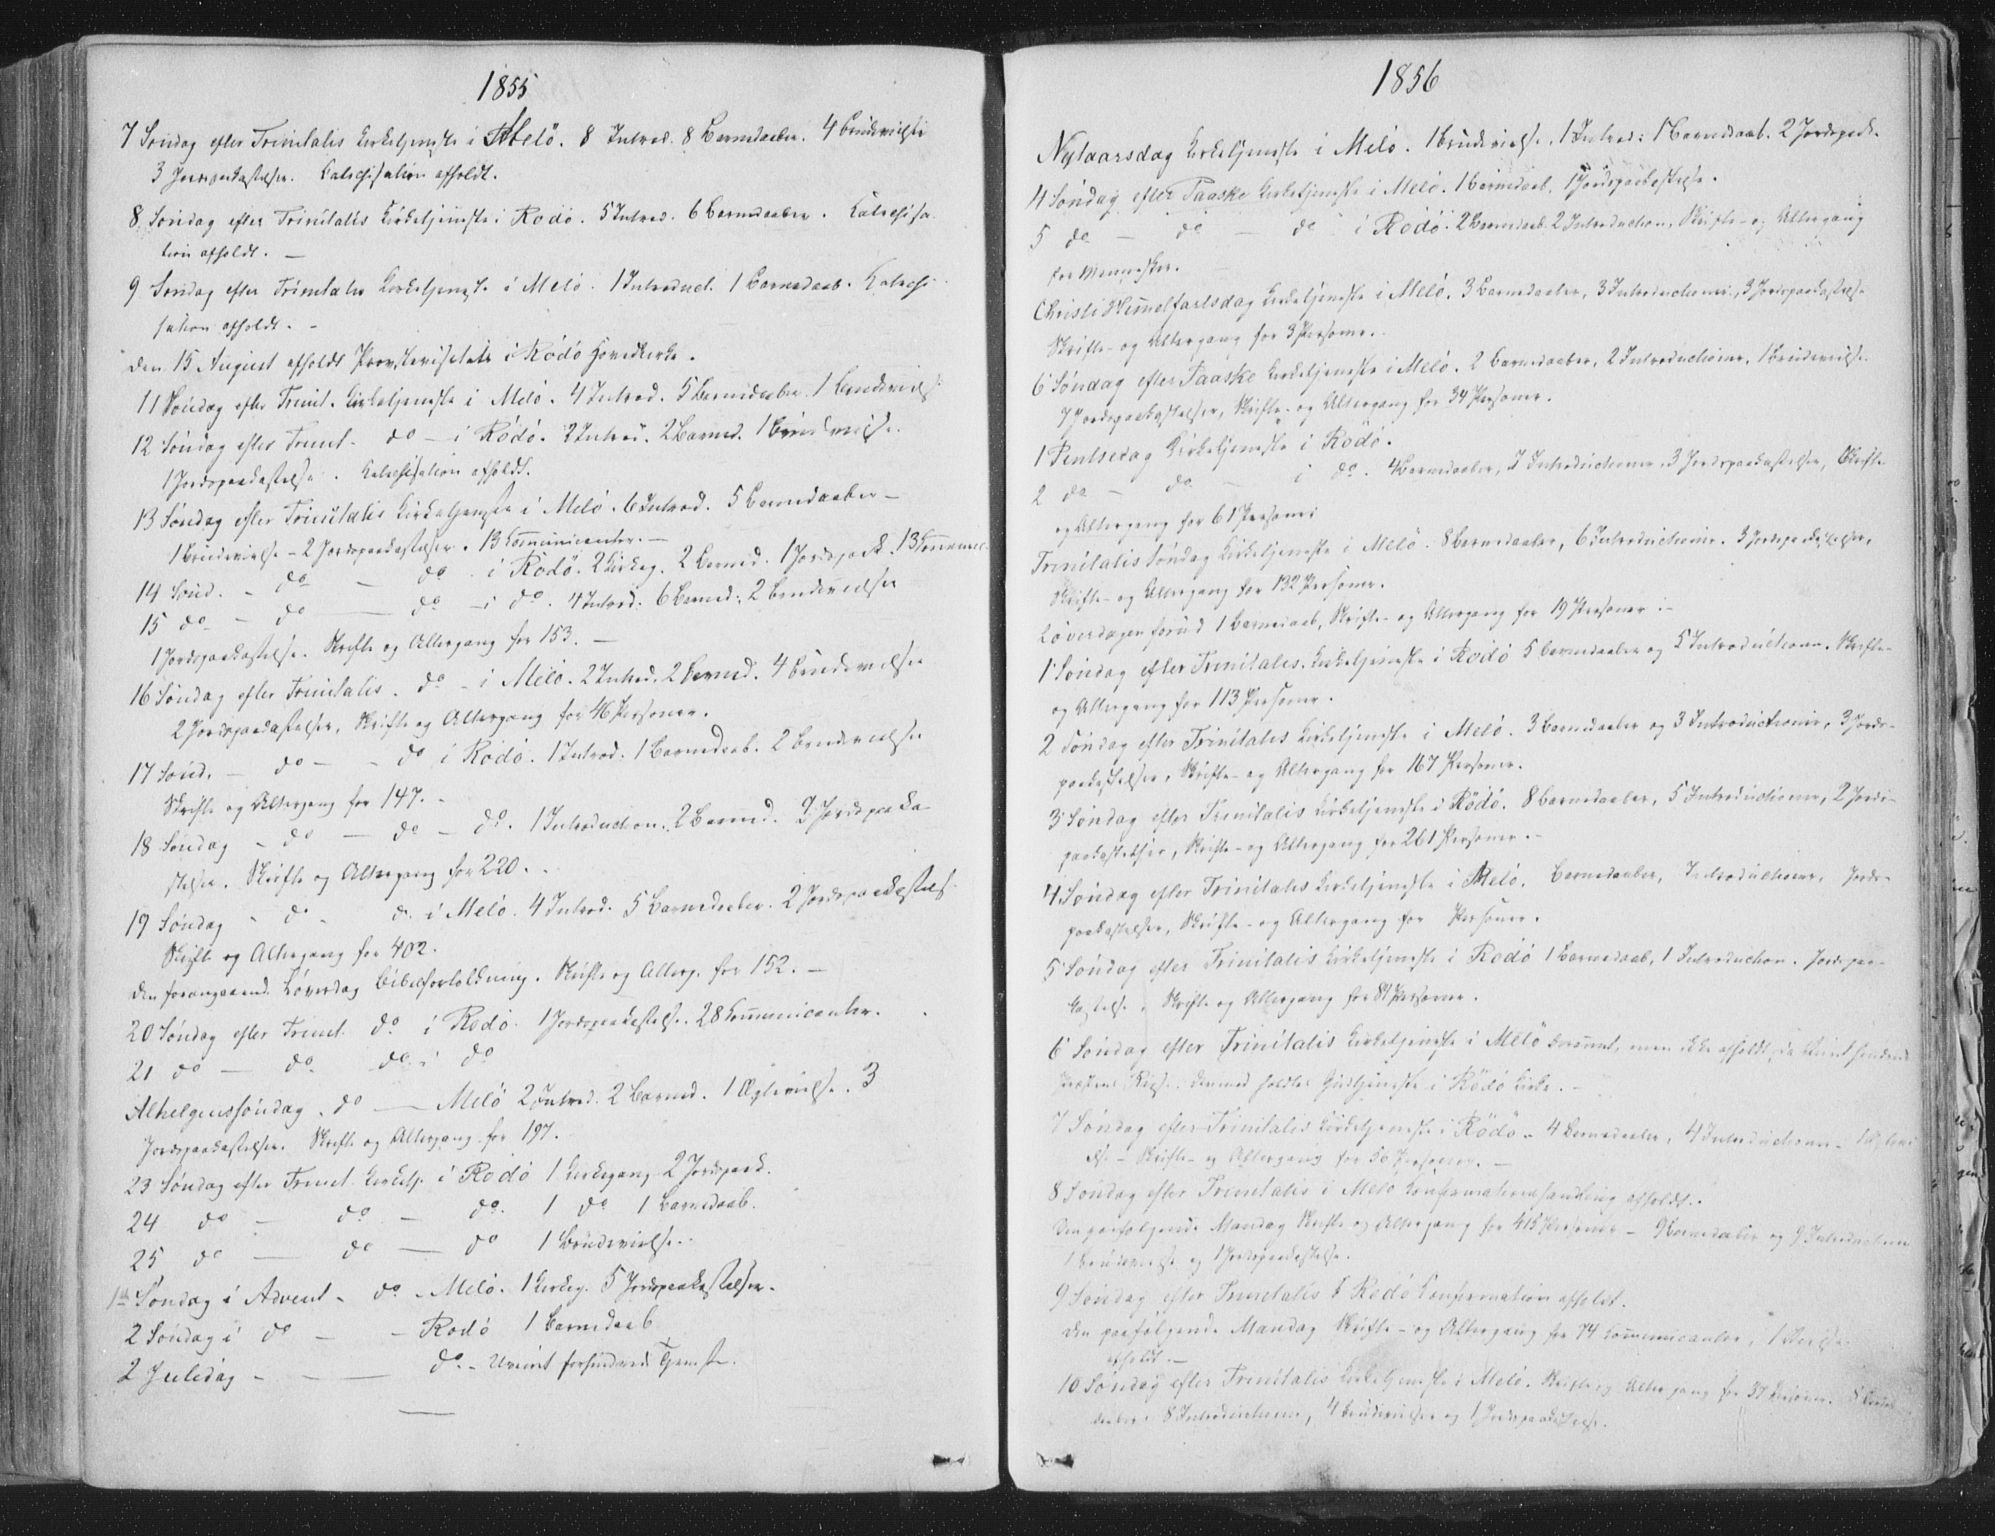 1855
7 Søndag efter Trinitatis Kirketjeneste i Melö. 8 Introd. 8 Barnedaaber. 4 Brudevielser
3 Jordpaakastelser. Catechisation afholdt.
8 Søndag efter Trinitatis Kirketjeneste i Rödö. 5 Introd. 6 Barnedaaber. Catechisa
tion afholdt. —
9 Søndag efter Trinitatis Kirketjeneste i Melö. 1 Introduct. 1 Barnedaab. Catechi
sation afholdt. -
Den 15 August afholdt Provstevisitats i Rödö Hovedkirke.
11 Søndag efter Trinit. Kirketjeneste i Melö. 4 Introd. 5 Barnedaaber. 1 Brudevielse
12 Søndag efter Trinit. do — i Rödö. 2 Introd. 2 Barned. 1 Brudevielse.
1 Jordspaakastelse. Catechisation afholdt.
13 Søndag efter Trinitatis Kirketjeneste i Melö. 6 Introd. 5 Barnedaaber —
1 Brudevielse - 2 Jordspaakastelser. 13 Communicanter. —
14 Sönd. - do — do i Rödö. 2 Kirkeg. 2 Barned. 1 Jordspaak. 13 Commun.
15 do — do — do — i do. 4 Introd: 6 Barned: 2 Brudevielser
1 Jordspaakastelse. Skrifte og Altergang for 153. —
16 Søndag efter Trinitatis. do - i Melö. 2 Introd. 2 Barned. 4 Brudevielser
2 Jordspaakastelser, Skrifte og Altergang for 46 Personer.
17 Sönd. — do — - do i Rödö. 1 Introd. 1 Barnedaab. 2 Brudevielser
Skrifte og Altergang for 147. -
18 Søndag - do — do — do. 1 Introduction. 2 Barned. 2 Jordspaaka-
stelser. Skrifte og Altergang for 220. -
19 Søndag - do - d. i Melö. 4 Introd. 5 Barnedaaber. 2 Jordspaakastels.
Skrifte og Altergang for 402.
Den foregaaend. Løverdag Bibelfortolkning. Skrifte og Alterg. for 152. —
20 Søndag efter Trinit. do i Rödö. 1 Jordspaakastelse. 28 Communicanter.
21 do — do do i do
Alhelgenssøndag. do — Melö 2 Introd. 2 Barned. 1 Ægtevielse. 3
Jordspaakastelser. Skrifte og Altergang for 197.
23 Søndag efter Trinit. Kirketj. i Rödö 1 Kirkegang 2 Jordspaak.
24 do — do — do. 1 do 1 Barnedaab.
25 do — do — do 1 Brudevielse.
1ste Søndag i Advent - do - Melö. 1 Kirkeg. 5 Jordspaakastelser.
2 Søndag i do — - Rödö 1 Barnedaab
2 Juledag - — do. - Uveir forhindrede Tjeneste.
1856
Nytaarsdag Kirketjeneste i Melö. 1 Brudevielse, 1 Introd: 1 Barnedaab. 2 Jordspaak.
4 Søndag efter Paaske Kirketjeneste i Melö. 1 Barnedaab, 1 Jordspaakastelse.
5 do — do — do i Rödö. 2 Barnedaab. 2 Introduction, Skrifte- og Altergang
for Mennesker.
Christi Himmelfartsdag Kirketjeneste i Melö. 3 Barnedaaber, 3 Introductioner, 3 Jordspaakastelse
Skrifte- og Altergang for 3 Personer.
6 Søndag efter Paaske Kirketjeneste i Melö. 2 Barnedaaber, 2 Introductioner, 1 Brudevielse
7 Jordspaakastelser, Skrifte- og Altergang for 34 Personer.
1 Pintsedag Kirketjeneste i Rödö.
2 do — do — i do. 4 Barnedaaber, 3 Introductioner, 3 Jordspaakastelser, Skrifte
og Altergang for 61 Personer.
Trinitatis Søndag Kirketjeneste i Melö. 8 Barnedaaber, 6 Introductioner. 3 Jordspaakastelser,
Skrifte- og Altergang for 132 Personer.
Löverdagen forud 1 Barnedaab, Skrifte- og Altergang for 19 Personer. -
1 Søndag efter Trinitatis. Kirketjeneste i Rödö 5 Barnedaaber og 5 Introductioner. Skrifte-
og Altergang for 113 Personer.
2 Søndag efter Trinitatis Kirketjeneste i Melö. 3 Barnedaaber og 3 Introductioner, 3 Jords-
paakastelser, Skrifte- og Altergang for 167 Personer.
3 Søndag efter Trinitatis Kirketjeneste i Rödö. 8 Barnedaaber, 5 Introductioner, 2 Jords-
paakastelser, Skrifte- og Altergang for 261 Personer. -
4 Søndag efter Trinitatis Kirketjeneste i Melö. Barnedaaber, Introductioner, Jords-
paakastelser, Skrifte- og Altergang for Personer.
5 Søndag efter Trinitatis Kirketjeneste i Rödö 1 Barnedaab, 1 Introduction. Jordspaa-
kastelse, Skrifte og Altergang for 84 Personer.
6 Søndag efter Trinitatis Kirketjeneste i Melö berammet, men ikke afholdt, da Uveir hindrede
Præstens Reise. Derimod holdtes Gudstjeneste i Rödö Kirke. -
7 Søndag efter Trinitatis Kirketjeneste i Rödö - 4 Barnedaaber, 4 Introductioner - 1 Ægtevi
else - Skrifte- og Altergang for 50 Personer. —
8 Søndag efter Trinitatis i Melö Confirmationshandling afholdt.
Den paafølgende Mandag Skrifte og Altergang for 415 Personer - 9 Barnedaaber og 9 Introductioner
1 Brudevielse og 1 Jordspaakastelse.
9 Søndag efter Trinitatis i Rödö Confirmation afholdt.
Den paafølgende Mandag Skrifte- og Altergang for 74 Communicanter, 1
afholdt. —
10 Søndag efter Trinitatis Kirketjeneste i Melö. Skrifte og Altergang for 37 Personer. 8 Barne
daaber, 8 Introductioner, 4 Brudevielser og 1 Jordspaakastelse.